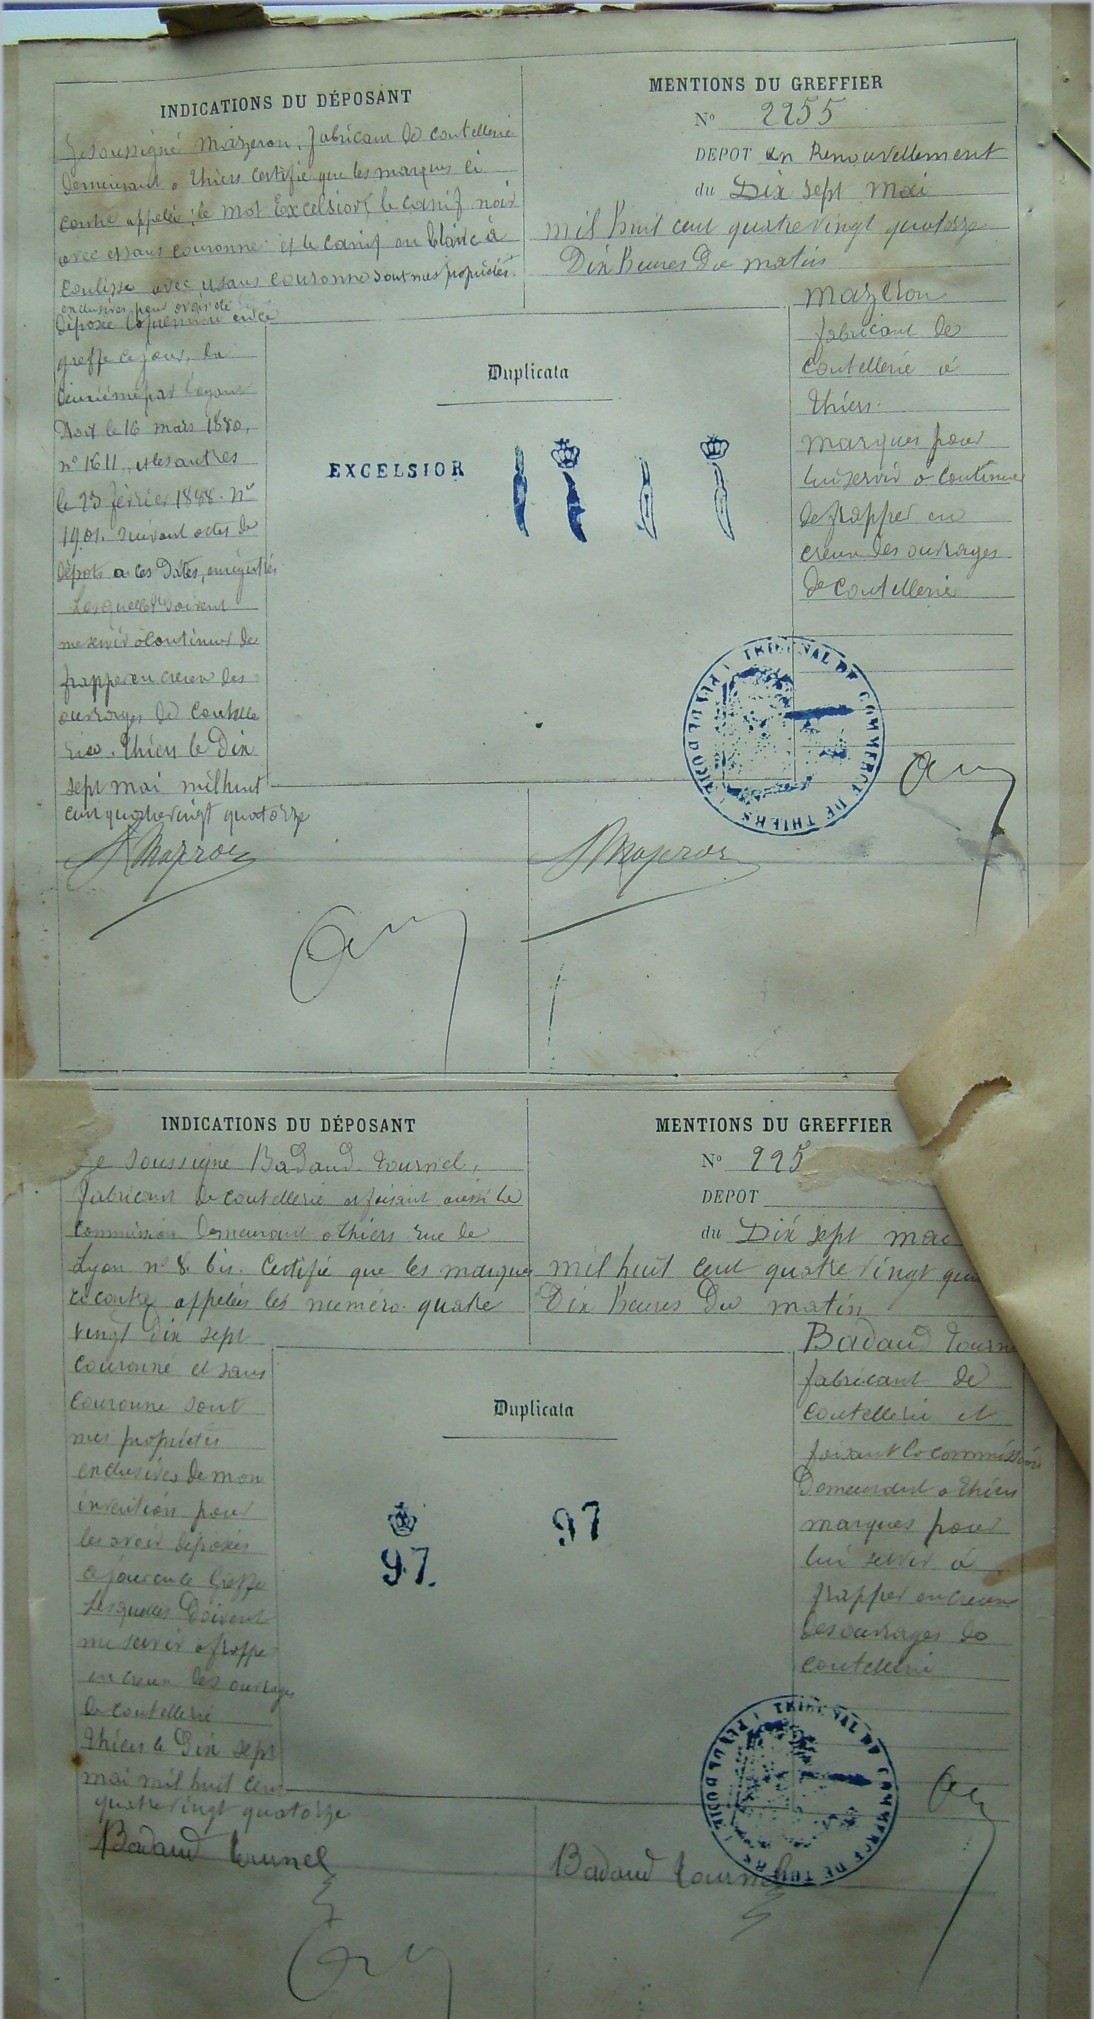 INDICATIONS DU DÉPOSANT
Je soussigné Mazeron, fabricant de coutellerie
demeurant à Thiers certifie que les marques ci
contre appelée; le mot Excelsior, le canif noir
avec et sans couronne et le canif en blanc à
coulisse avec et sans couronne sont mes propriétés
exclusives pour avoir été
déposée la première en ce
greffe ce jour, la
deuxième par l'ayant
droit le 16 mars 1880,
n° 1611 et les autres
le 23 février 1888. N°
1901. suivant actes de
dépots a ces dates, enrégistrés
Lesquelles doivent
me servir à continuer de
frapper en creux des
ouvrages de coutelle
rie. Thiers le Dix
sept mai mil huit
cent quatre vingt quatorze
MENTIONS DU GREFFIER
N° 2255
DEPOT en Renouvellement
du Dix sept mai
mil huit cent quatre vingt quatorze
Dix heures du matin
Mazeron
fabricant de
coutellerie à
Thiers.
marques pour
lui servir à continuer
de frapper en
creux des ouvrages
de coutellerie
Duplicata
EXCELSIOR
TRIBUNAL DE COMMERCE DE THIERS
PUY DE DOME
INDICATIONS DU DÉPOSANT
Je soussigné Badaud Tournel,
fabricant de coutellerie et faisant aussi la
commission demeurant à Thiers rue de
Lyon n° 8 bis. Certifie que les marques
ci contre appelées les numéro quatre
vingt dix sept
couronné et sans
couronne sont
mes propriétés
exclusives de mon
invention pour
les avoir déposés
ce jour en ce Greffe
Lesquelles doivent
me servir à frapper
en creux des ouvrages
de coutellerie
Thiers le Dix sept
mai mil huit cent
quatre vingt quatorze
Badaud Tournel
MENTIONS DU GREFFIER
N° 225
DEPOT
du Dix sept mai
mil huit cent quatre vingt qua
Dix heures du matin
Badaud Tourne
fabricant de
coutellerie et
faisant la commission
Demeurant à Thiers
marques pour
lui servir à
frapper en creux
des ouvrages de
coutellerie
Duplicata
97.
97
TRIBUNAL DE COMMERCE DE THIERS
PUY DE DOME
Badaud Tournel